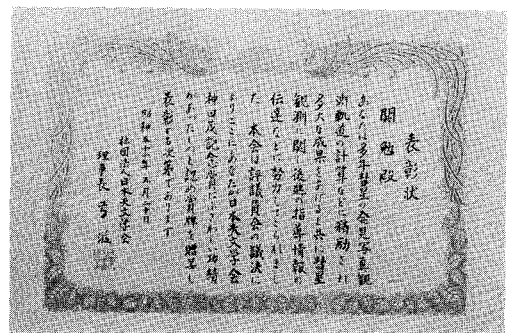 表彰状
関 勉殿
あなたは多年彗星の発見写真観
測軌道の計算などに精励され
多大な成果をあげると共に彗星
観測に関し後進の指導情報の
伝達などに努力してこられまし
た 本会は評議員会の議決に
よりここにあなたが日本天文学会
神田茂記念賞にふさわしい功績
があったものと認め賞牌を贈呈し
表彰する次第であります
昭和五十 年五月 十日
社団法人日本天文学会
理事長